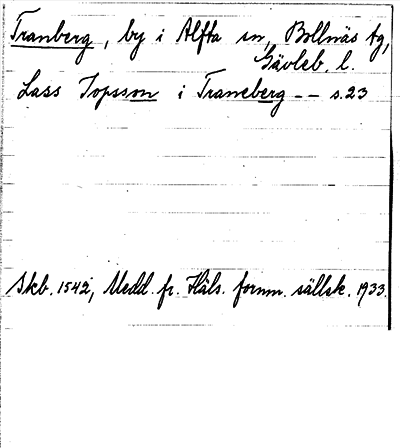 Tranberg, by i Alfta sn, Bollnäs tg,
Gävleb. l.
Lass Topsson i Traneberg -- s. 23
Skb. 1542, Medd. fr. Häls. fornm. sällsk. 1933.